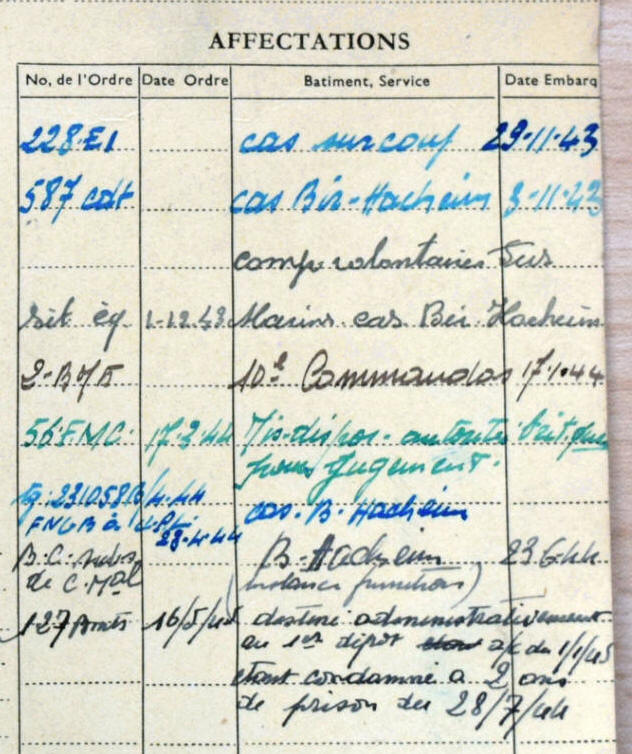 AFFECTATIONS
No, de l'Ordre Date Ordre Batiment, Service Date Embarq
228.E1 cas surcouf 29-11-43
587 cdt cas Bir-Hacheim 3-11-43
comp. volontaires Fus
sit. éq 1-12.43 Marins. cas Bir. Hacheim
2-B/E 10e Commandos 17.1.44
56 FMC. 17-3-44 Mis-dispos. autorités Brit.
pour Jugement.
cas. B. Hacheim
FNGB à 28-4-44
B. C. subs. B-Hacheim 23 6 44
de C. Mal
127 Amts 16/5/45 destiné administrativement
au 1er dépôt a/c du 1/1/45
étant condamné à 2 ans
de prison du 28/7/44